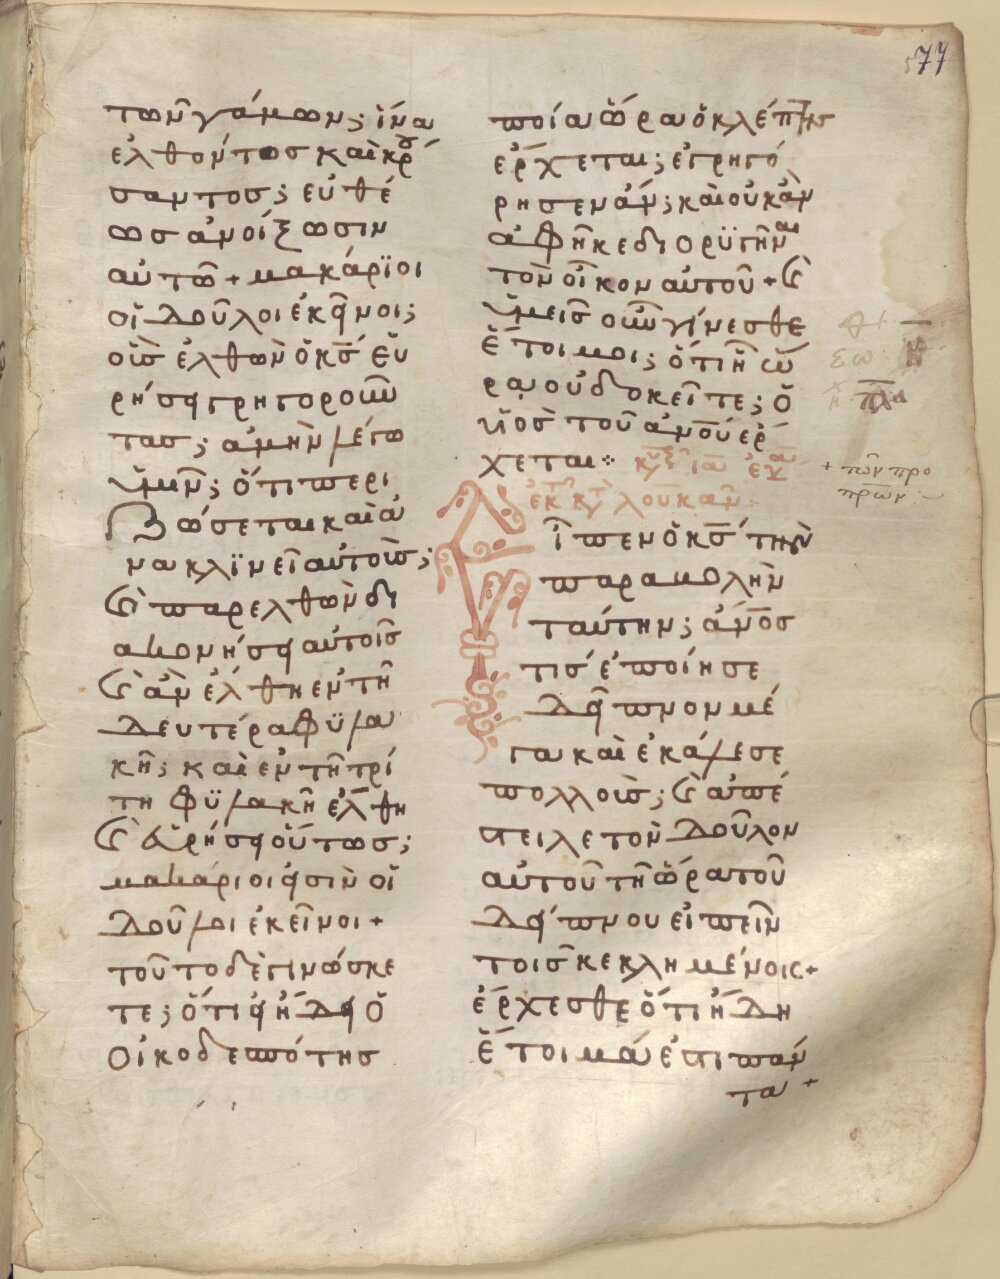 577
τῶν γάμων; ἵνα
ἐλθόντωσ καὶ κρού
σαντοσ; εὐθέ
ωσ ἀνοίξωσιν
αὐτῶ + μακάρϊοι
οἱ δοῦλοι ἐκεῖνοι;
οὓσ ἐλθὼν ὁ κ̅σ̅ εὑ
ρήσει γρηγοροῦν
τασ; ἀμὴν λέγω
ὑμῖν; ὅτι περι
ζώσεται καὶ ἀ
νακλϊνεῖ αὐτοὺσ;
καὶ παρελθὼν δι
ακονήσει αὐτοῖσ
καὶ ἂν ἔλθη ἐν τῆ
δευτέρα φϋλα
κῆ; καὶ ἐν τῆ τρί
τη φϋλακῆ ἔλθη
καὶ εὑρήσει οὕτωσ;
μακάριοι εἰσὶν οἱ
δοῦλοι ἐκεῖνοι +
τοῦτο δὲ γινώσκε
τε; ὅτι εἰ ἤδει ὁ
οἰκοδεσπότησ
ποία ὥρα ὁ κλέπτησ
ἔρχεται; ἐγρηγό
ρησεν ἄν; καὶ οὐκ ἂν
ἀφῆκε διορϋγῆναι
τὸν οἶκον αὐτοῦ + καὶ
ὑμεῖσ οὖν γίνεσθε
ἕτοιμοι; ὅτι ἧ ὥ
ρα οὐ δοκεῖτε; ὁ
υἱὸσ τοῦ α̅ν̅ο̅υ̅ ἔρ
χεται
ἐκ τ κτ λουκᾶν
εἶπεν ὁ κ̅σ̅ τὴν
παραβολὴν
ταύτην; α̅ν̅ο̅σ̅
τισ ἐποίησε
δεῖπνον μέ
γα καὶ ἐκάλεσε
πολλοὺσ; καὶ ἀπέ
στειλε τὸν δοῦλον
αὐτοῦ τῆ ὥρα τοῦ
δείπνου εἰπεῖν
τοῖσ κεκλημένοις +
ἔρχεσθε ὅτι ἤδη
ἕτοιμά ἐστι πάν
τα +
+ τῶν προ
πρων